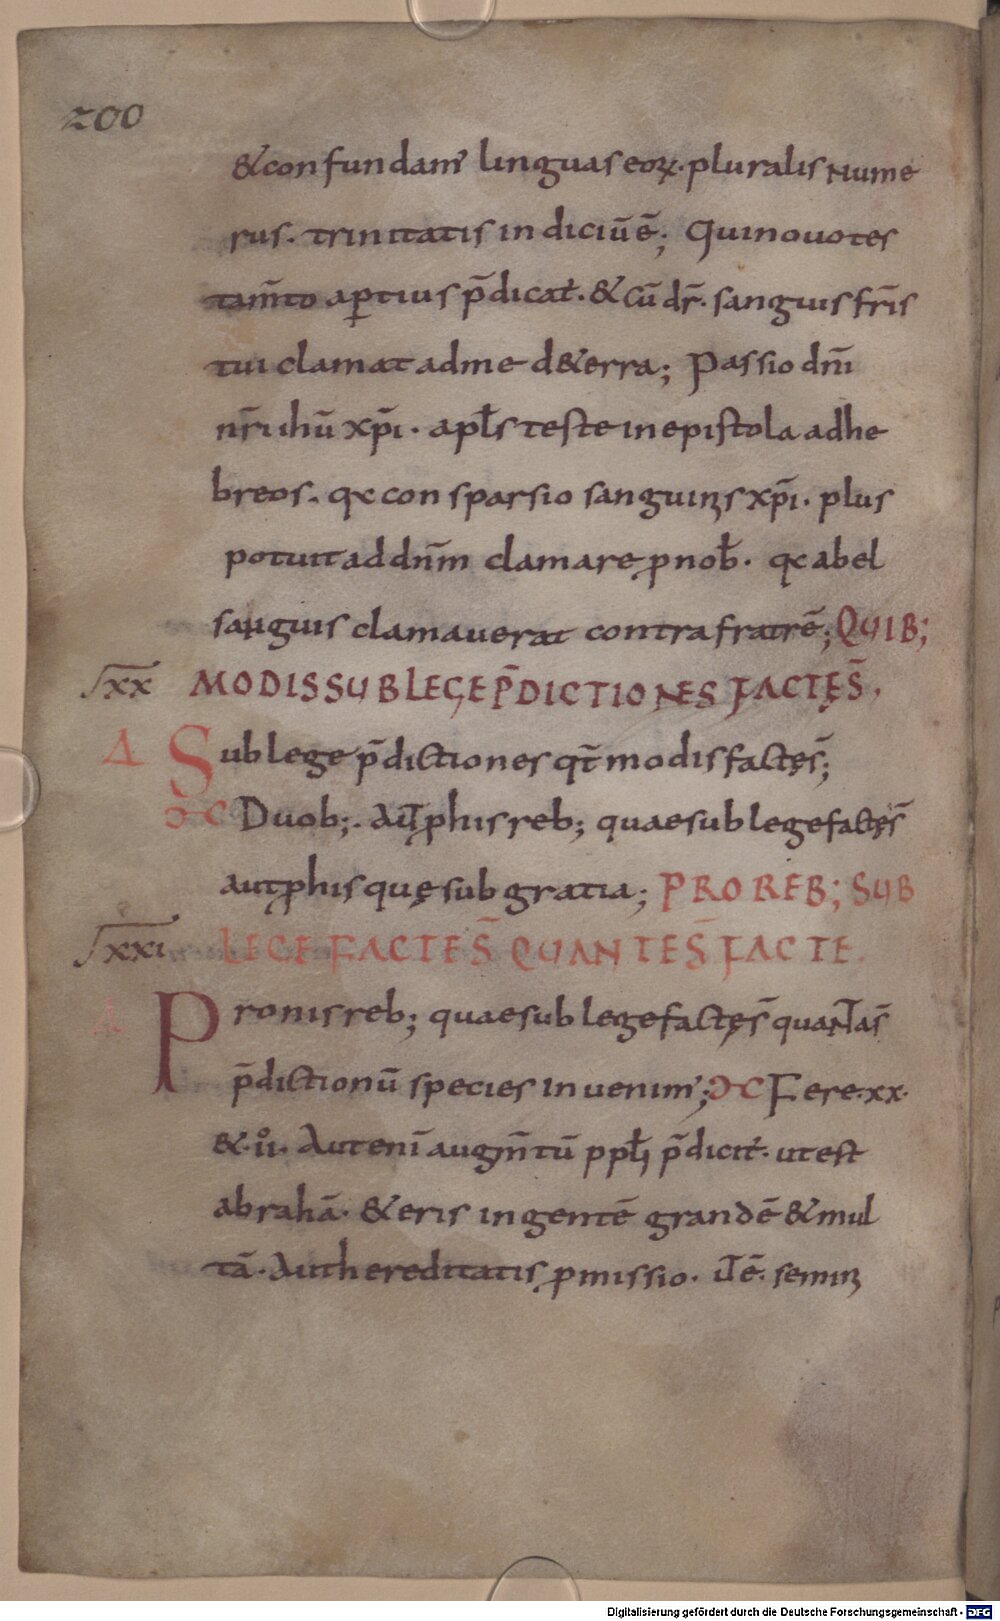 200
&confundam' linguas eoꝝ· pluralis nume
rus. trinitatis indiciū ē; Quinouotes
tam̄to aꝑtius p̄dicat̄· & cū dr̄· sanguis fr̄is
tui clamat adme d&erra; Passio dn̄i
nr̄i ihū xp̄i· apl̄s teste inepistola adhe
breos. q: consparsio sanguinis xp̄i· plus
potuit addn̄m clamare ꝓ nob̄· q: abel
sanguis clamauerat contra fratrē; QUIB;
√XX MODIS SUB LEGE P̄DICTIONES FACTĘ S̄.
Δ Sub lege p̄dictiones qt̄ modis factę s̄;
ƆC Duob;· Aut ꝓ his reb; quae sub lege factę s̄
aut ꝓ his quę sub gratia; PRO REB; SUB
√XXI LEGE FACTE S̄ QUANTE S̄ FACTE.
Δ Pro nis reb; quae sub lege factę s̄ quantas̄
p̄dictionū species inuenim'; ƆC Fere·xx·
&·ii· Aut eni augm̄tū ppl̄i p̄dicit̄· ut est
abrahā· & eris in gentē grandē & mul
tā· Aut hereditatis ꝓmissio· ut ē· semini
Digitalisierung gefördert durch die Deutsche Forschungsgemeinschaft - DFG